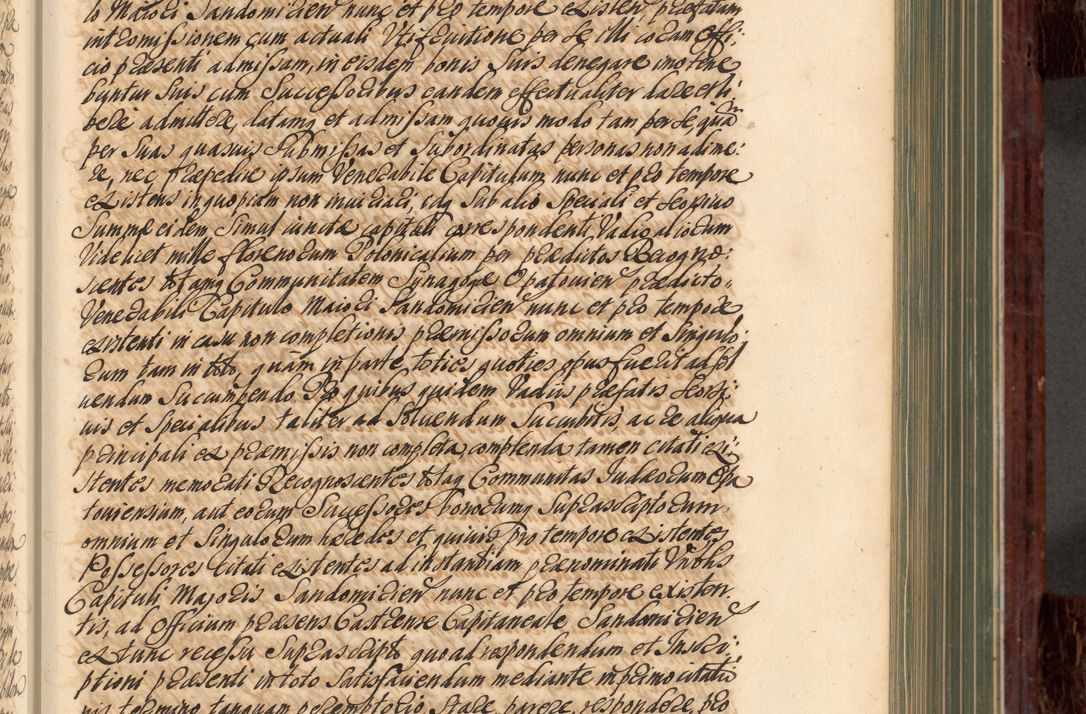 lo Maiori Sandomirien nunc et pro tempore existen, praefatam
intromissionem cum actuali Utifruitione per se illi coram offi:
cio praesenti admissam, in eisdem bonis suis denegare, imo tene
buntur suis cum Successoribus eandem effectualiter dare et li
bere admittere, datamq et admissam quovis modo tam per se quam
per Suas quasuis Submissas et Subordinatas personas non adime:
re, nec praepedire ipsum Venerabile Capitulum nunc et pro tempore
existens in quopiam non inuidari, idq Sub alio Speciali et seorsiuo
Summae eidem Simul iunctae capitali correspondenti Vadio aliorum
Videlicet mille florenorum Polonicalium per praedictos Recogno:
scentes totamq Communitatem Synagogae Opatouien praedicto
Venerabili Capitulo Maiori Sandomirien nunc et pro tempore
existenti in casu non completionis praemissorum omnium et Singulo:
rum tam in toto, quam in parte, toties quoties opus fuerit ad sol
uendum Succumpendo Pro quibus quidem Vadiis praefatis seorsi:
uis et Specialibus taliter ad Soluendum Succubitis ac re aliqua
principali ex praemissis non completa, complenda tamen citati exi:
stentes memorati Recognoscentes totaq Communitas Judaeorum Opa
touiensium, aut eorum Successores bonorumq Suprascriptorum
omnium et Singulorum haeredes et quiuis pro tempore existentes
Possessores Citati existentes ad instantiam praenominati Vnbls
Capituli Majoris Sandomirien nunc et pro tempore existen:
tis, ad Officium praesens Castrense Capitaneale Sandomirien
ex tunc recessu Suprascripto quo ad respondendum et Inscri:
ptioni praesenti in toto Satisfaciendum mediante in primo citatio
nis termino tanquam peremptorio Stare, parere, respondere, pro